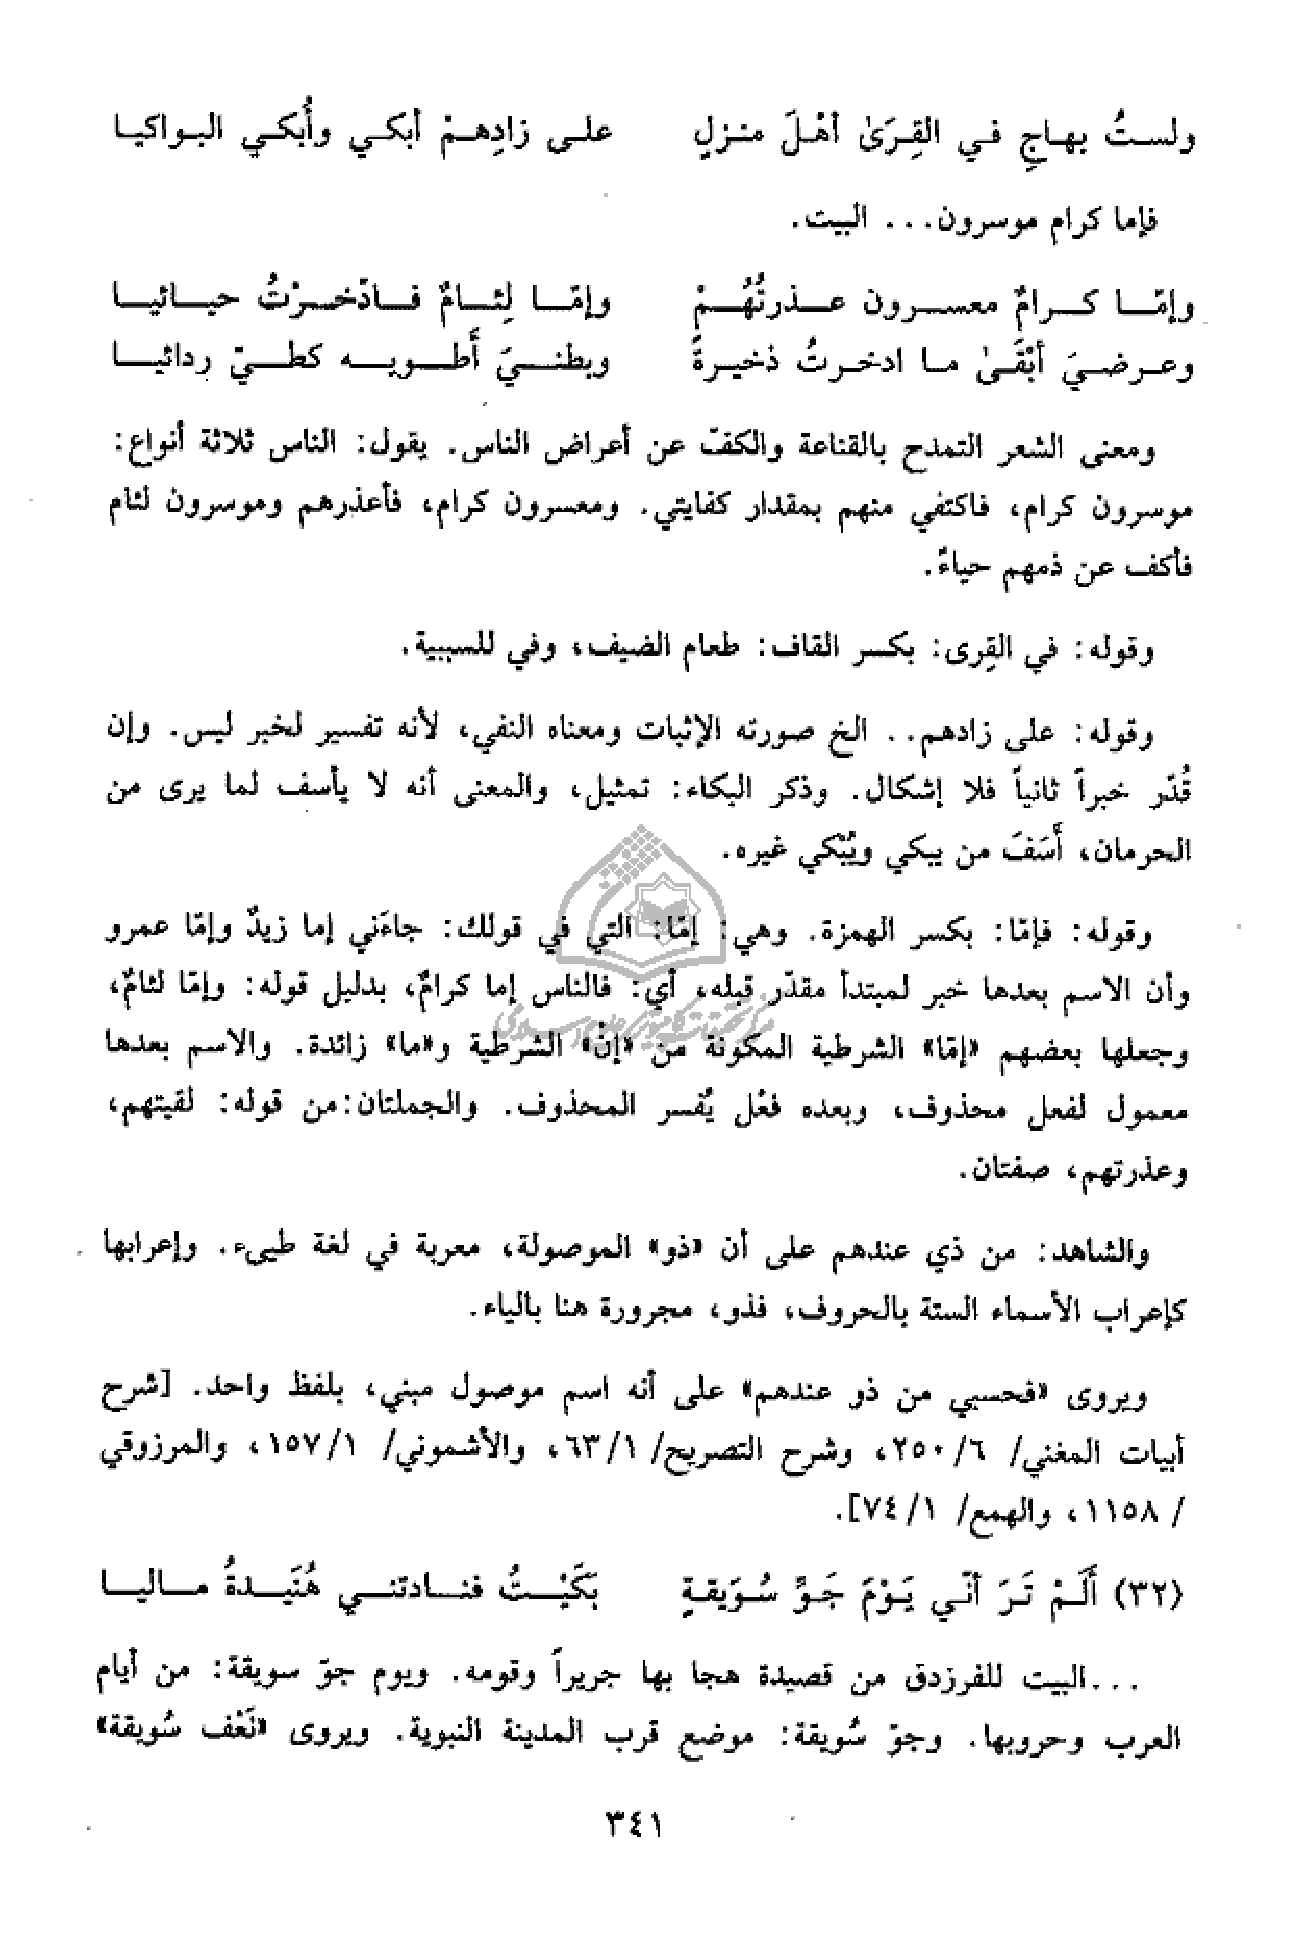 ولستُ بهاجِ في القِرَىٰ أهْلَ منزلٍ على زادِهمْ أبكي وأُبكي البواكيا
فإما كرام موسرون... البيت.
وإمّا كرامٌ معسرون عذرتُهُمْ وإمّا لِئامٌ فادّخرْتُ حيائيا
وعرضيَ أبْقَىٰ ما ادخرتُ ذخيرةً وبطنيَ أَطويه كطيّ ردائيا
ومعنى الشعر التمدح بالقناعة والكفّ عن أعراض الناس. يقول: الناس ثلاثة أنواع:
موسرون كرام، فاكتفي منهم بمقدار كفايتي. ومعسرون كرام، فأعذرهم وموسرون لئام
فأكف عن ذمهم حياءً.
وقوله: في القِرى: بكسر القاف: طعام الضيف، وفي للسببية.
وقوله: على زادهم.. الخ صورته الإثبات ومعناه النفي، لأنه تفسير لخبر ليس. وإن
قُدّر خبراً ثانياً فلا إشكال. وذكر البكاء: تمثيل، والمعنى أنه لا يأسف لما يرى من
الحرمان، أَسَفَ من يبكي ويُبْكي غيره.
وقوله: فإمّا: بكسر الهمزة. وهي: إمّا: التي في قولك: جاءَني إما زيدٌ وإمّا عمرو
وأن الاسم بعدها خبر لمبتدأ مقدّر قبله، أي: فالناس إما كرامٌ، بدليل قوله: وإمّا لئامٌ،
وجعلها بعضهم «إمّا» الشرطية المكونة من «إنْ» الشرطية و«ما» زائدة. والاسم بعدها
معمول لفعل محذوف، وبعده فعْل يُفسر المحذوف. والجملتان:من قوله: لقيتهم،
وعذرتهم، صفتان.
والشاهد: من ذي عندهم على أن «ذو» الموصولة، معربة في لغة طيىء. وإعرابها
كإعراب الأسماء الستة بالحروف، فذو، مجرورة هنا بالياء.
ويروى «فحسبي من ذو عندهم» على أنه اسم موصول مبني، بلفظ واحد. [شرح
أبيات المغني/ ٦/ ٢٥٠، وشرح التصريح/ ١/ ٦٣، والأشموني/ ١/ ١٥٧، والمرزوقي
/ ١١٥٨، والهمع/ ١/ ٧٤].
(٣٢) أَلَمْ تَرَ أنّي يَوْمَ جَوِّ سُوَيقةٍ بكَيْتُ فنادتني هُنَيدةُ ماليا
...البيت للفرزدق من قصيدة هجا بها جريراً وقومه. ويوم جوّ سويقة: من أيام
العرب وحروبها. وجوّ سُويقة: موضع قرب المدينة النبوية. ويروى «نَعْف سُويقة»
٣٤١